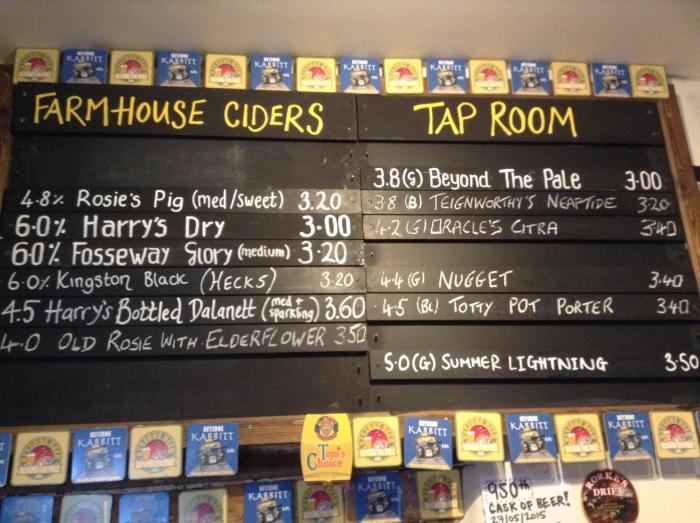 KEYZONE
KABBITT
KABBITT
KABBITT
KABBITT
KABBITT
FARMHOUSE CIDERS
4.8% Rosie's Pig (med/sweet) 3.20
6.0% Harry's Dry 3.00
6.0% Fosseway Glory (medium) 3.20
6.0% Kingston Black (HECKS) 3.20
4.5 Harry's Bottled Dalanett (med + sparkling) 3.60
4.0 OLD ROSIE WITH ELDERFLOWER 3.50
TAP ROOM
3.8 (G) Beyond The Pale 3.00
3.8 (B) TEIGNWORTHY'S NEAPTIDE 3.20
4.2 (G) ORACLE'S CITRA 3.40
4.4 (G) NUGGET 3.40
4.5 (BL) TOTTY POT PORTER 3.40
5.0 (G) SUMMER LIGHTNING 3.50
KEYZONE
KABBITT
KABBITT
Tom's
Choice
KABBITT
KABBITT
KABBITT
KABBITT
KABBITT
950th
CASK OF BEER!
27/05/2015